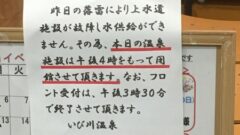 昨日の落雷により上水道
施設が故障し水供給ができ
ません。その為、本日の温泉
施設は午後4時をもって閉
館させて頂きます。なお、フロ
ント受付は、午後3時30分
で終了させて頂きます。
いび川温泉
火